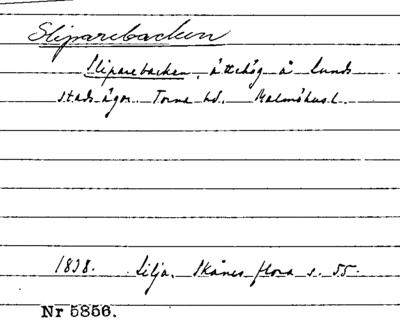 Sliparebacken
Sliparebacken, ättehög å Lunds
stads ägor. Torna hd. Malmöhus l.
1838. Lilja. Skånes flora s. 55.
Nr 5856.